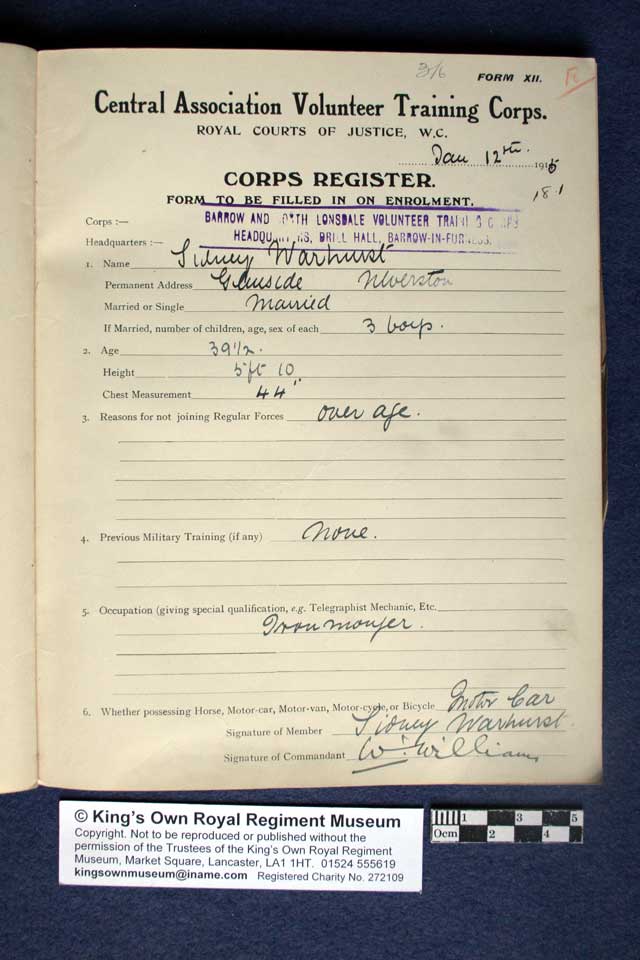 3/6 FORM XII.
Central Association Volunteer Training Corps.
ROYAL COURTS OF JUSTICE, W.C.
Jan 12th. 1915
CORPS REGISTER.
18.1
FORM TO BE FILLED IN ON ENROLMENT.
Corps :— BARROW AND NORTH LONSDALE VOLUNTEER TRAINING CORPS
Headquarters :— HEADQUARTERS, DRILL HALL, BARROW-IN-FURNESS.
1. Name Sidney Warhurst
Permanent Address Ulverston
Married or Single Married
If Married, number of children, age, sex of each 3 boys.
2. Age 39 1/2.
Height 5ft 10
Chest Measurement 44"
3. Reasons for not joining Regular Forces over age.
4. Previous Military Training (if any) None.
5. Occupation (giving special qualification, e.g. Telegraphist Mechanic, Etc.
Ironmonger.
6. Whether possessing Horse, Motor-car, Motor-van, Motor-cycle, or Bicycle Motor Car
Signature of Member Sidney Warhurst.
Signature of Commandant W. Williams
© King's Own Royal Regiment Museum
Copyright. Not to be reproduced or published without the
permission of the Trustees of the King's Own Royal Regiment
Museum, Market Square, Lancaster, LA1 1HT. 01524 555619
kingsownmuseum@iname.com Registered Charity No. 272109
1 3 5
0cm 2 4